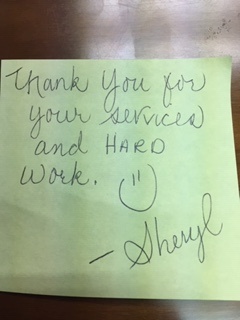 Thank You for
your services
and HARD
Work.
- Sheryl